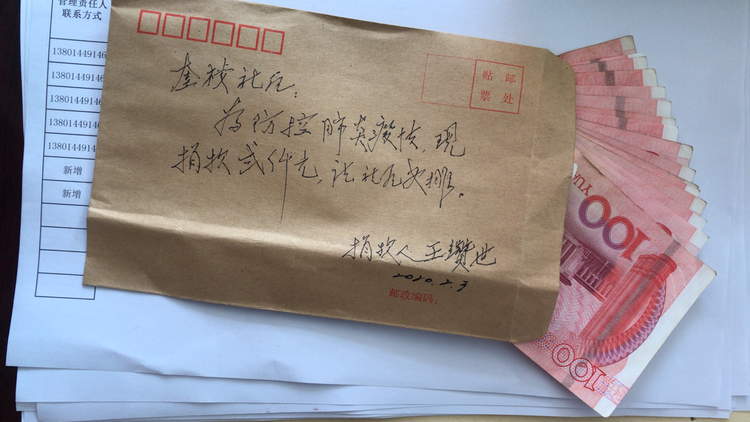 管理责任人
联系方式
13801449146
13801449146
13801449146
13801449146
13801449146
新增
新增
贴 邮
票 处
社区：
为防控肺炎疫情，现
捐款弍仟元，请社区安排。
捐款人王世
2020.2.3
邮政编码：
100
100
YUAN